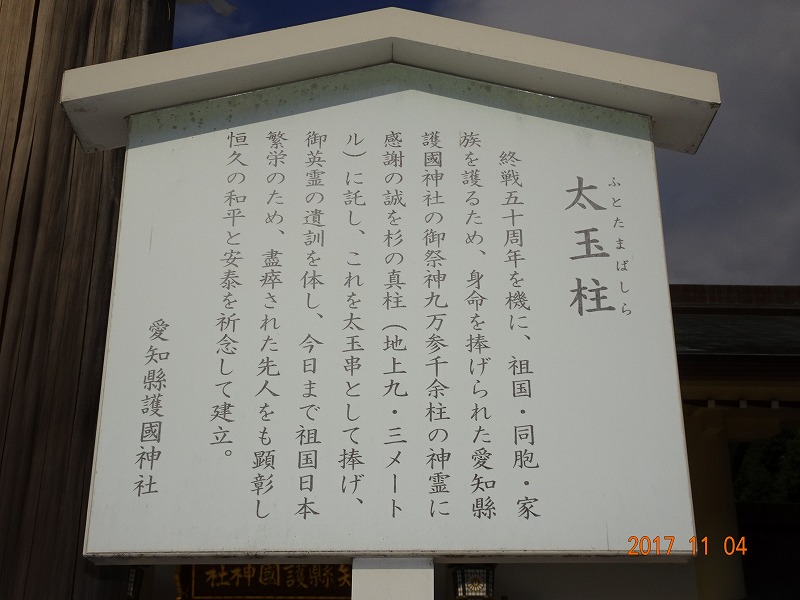 太玉柱
ふとたまばしら
終戦五十周年を機に、祖国・同胞・家
族を護るため、身命を捧げられた愛知縣
護國神社の御祭神九万参千余柱の神霊に
感謝の誠を杉の真柱(地上九・三メート
ル)に託し、これを太玉串として捧げ、
御英霊の遺訓を体し、今日まで祖国日本
繁栄のため、盡瘁された先人をも顕彰し
恒久の和平と安泰を祈念して建立。
愛知縣護國神社
社神國護縣知
2017 11 04